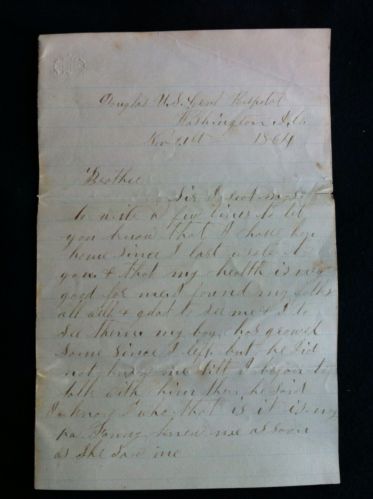 Douglas U.S. Genl Hospital
Washington D.C.
Nov 21st 1864
Brother
Sir I seat myself
to write a few lines to let
you know that I have been
home since I last wrote to
you & that my health is very
good for me I found my folks
all well & glad to see me & I to
see them my boy has grown
some since I left but he did
not know me till I began to
talk with him then he said
I know who that is it is my
pa Fanny knew me as soon
as she saw me